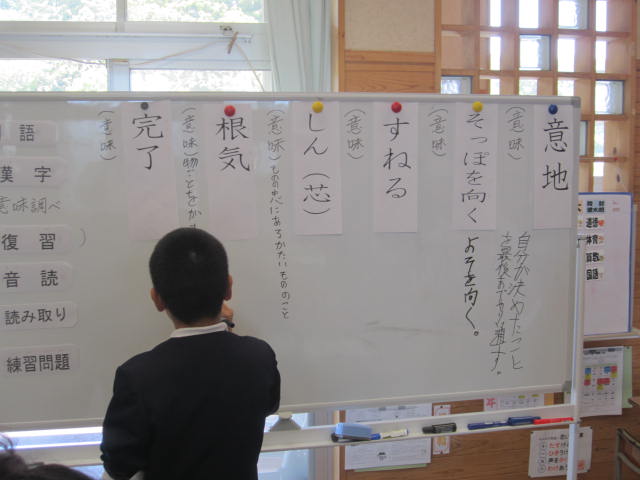 意地
(意味)
自分が決めたこと
を最後までやり通す。
そっぽを向く
(意味)
よそを向く。
すねる
(意味)
しん(芯)
(意味)ものの中心にあるかたいもののこと
根気
(意味)物ごとを
完了
(意味)
語
漢字
意味調べ
復習
音読
読み取り
練習問題
道徳
体育
算数
国語